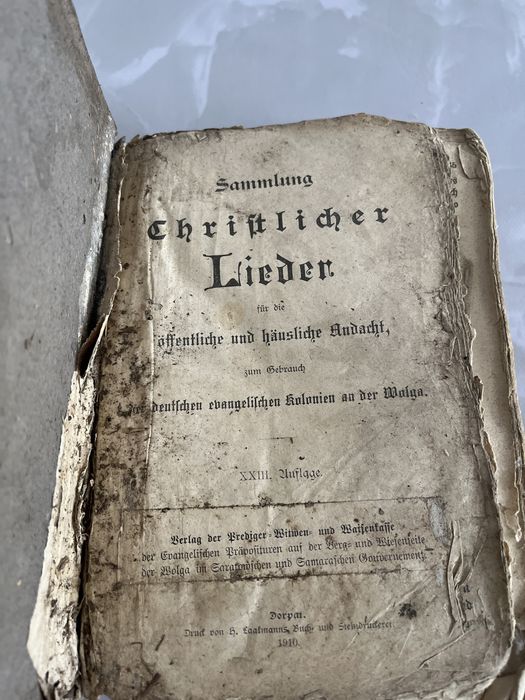 Sammlung
Christlicher
Lieder
für die
öffentliche und häusliche Andacht,
zum Gebrauch
deutschen evangelischen Kolonien an der Wolga.
XXIII. Auflage.
Verlag der Prediger-Witwen- und Waisenkasse
der Evangelischen Präposituren auf der Berg- und Wiesenseite
der Wolga im Saratowschen und Samaraschen Gouvernement.
Dorpat.
Druck von H. Laakmanns Buch- und Steindruckerei
1910.